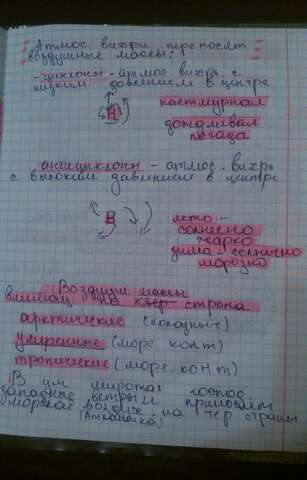 Атмос. вихри переносят
воздушные массы:
- циклоны - атмос. вихрь с
низким давлением в центре
Н
пасмурная
дождливая
погода
антициклоны - атмос. вихрь
с высоким давлением в центре
В
лето -
солнечно
жарко
зима - солнечно
морозно
Воздушн. массы
влияющ. на
страна
арктические (холодные)
умеренные (мор. конт)
тропические (мор. конт)
В ум. широтах господ.
западные ветры и приносят
морской воздух на тер. страны
(Атлантика)